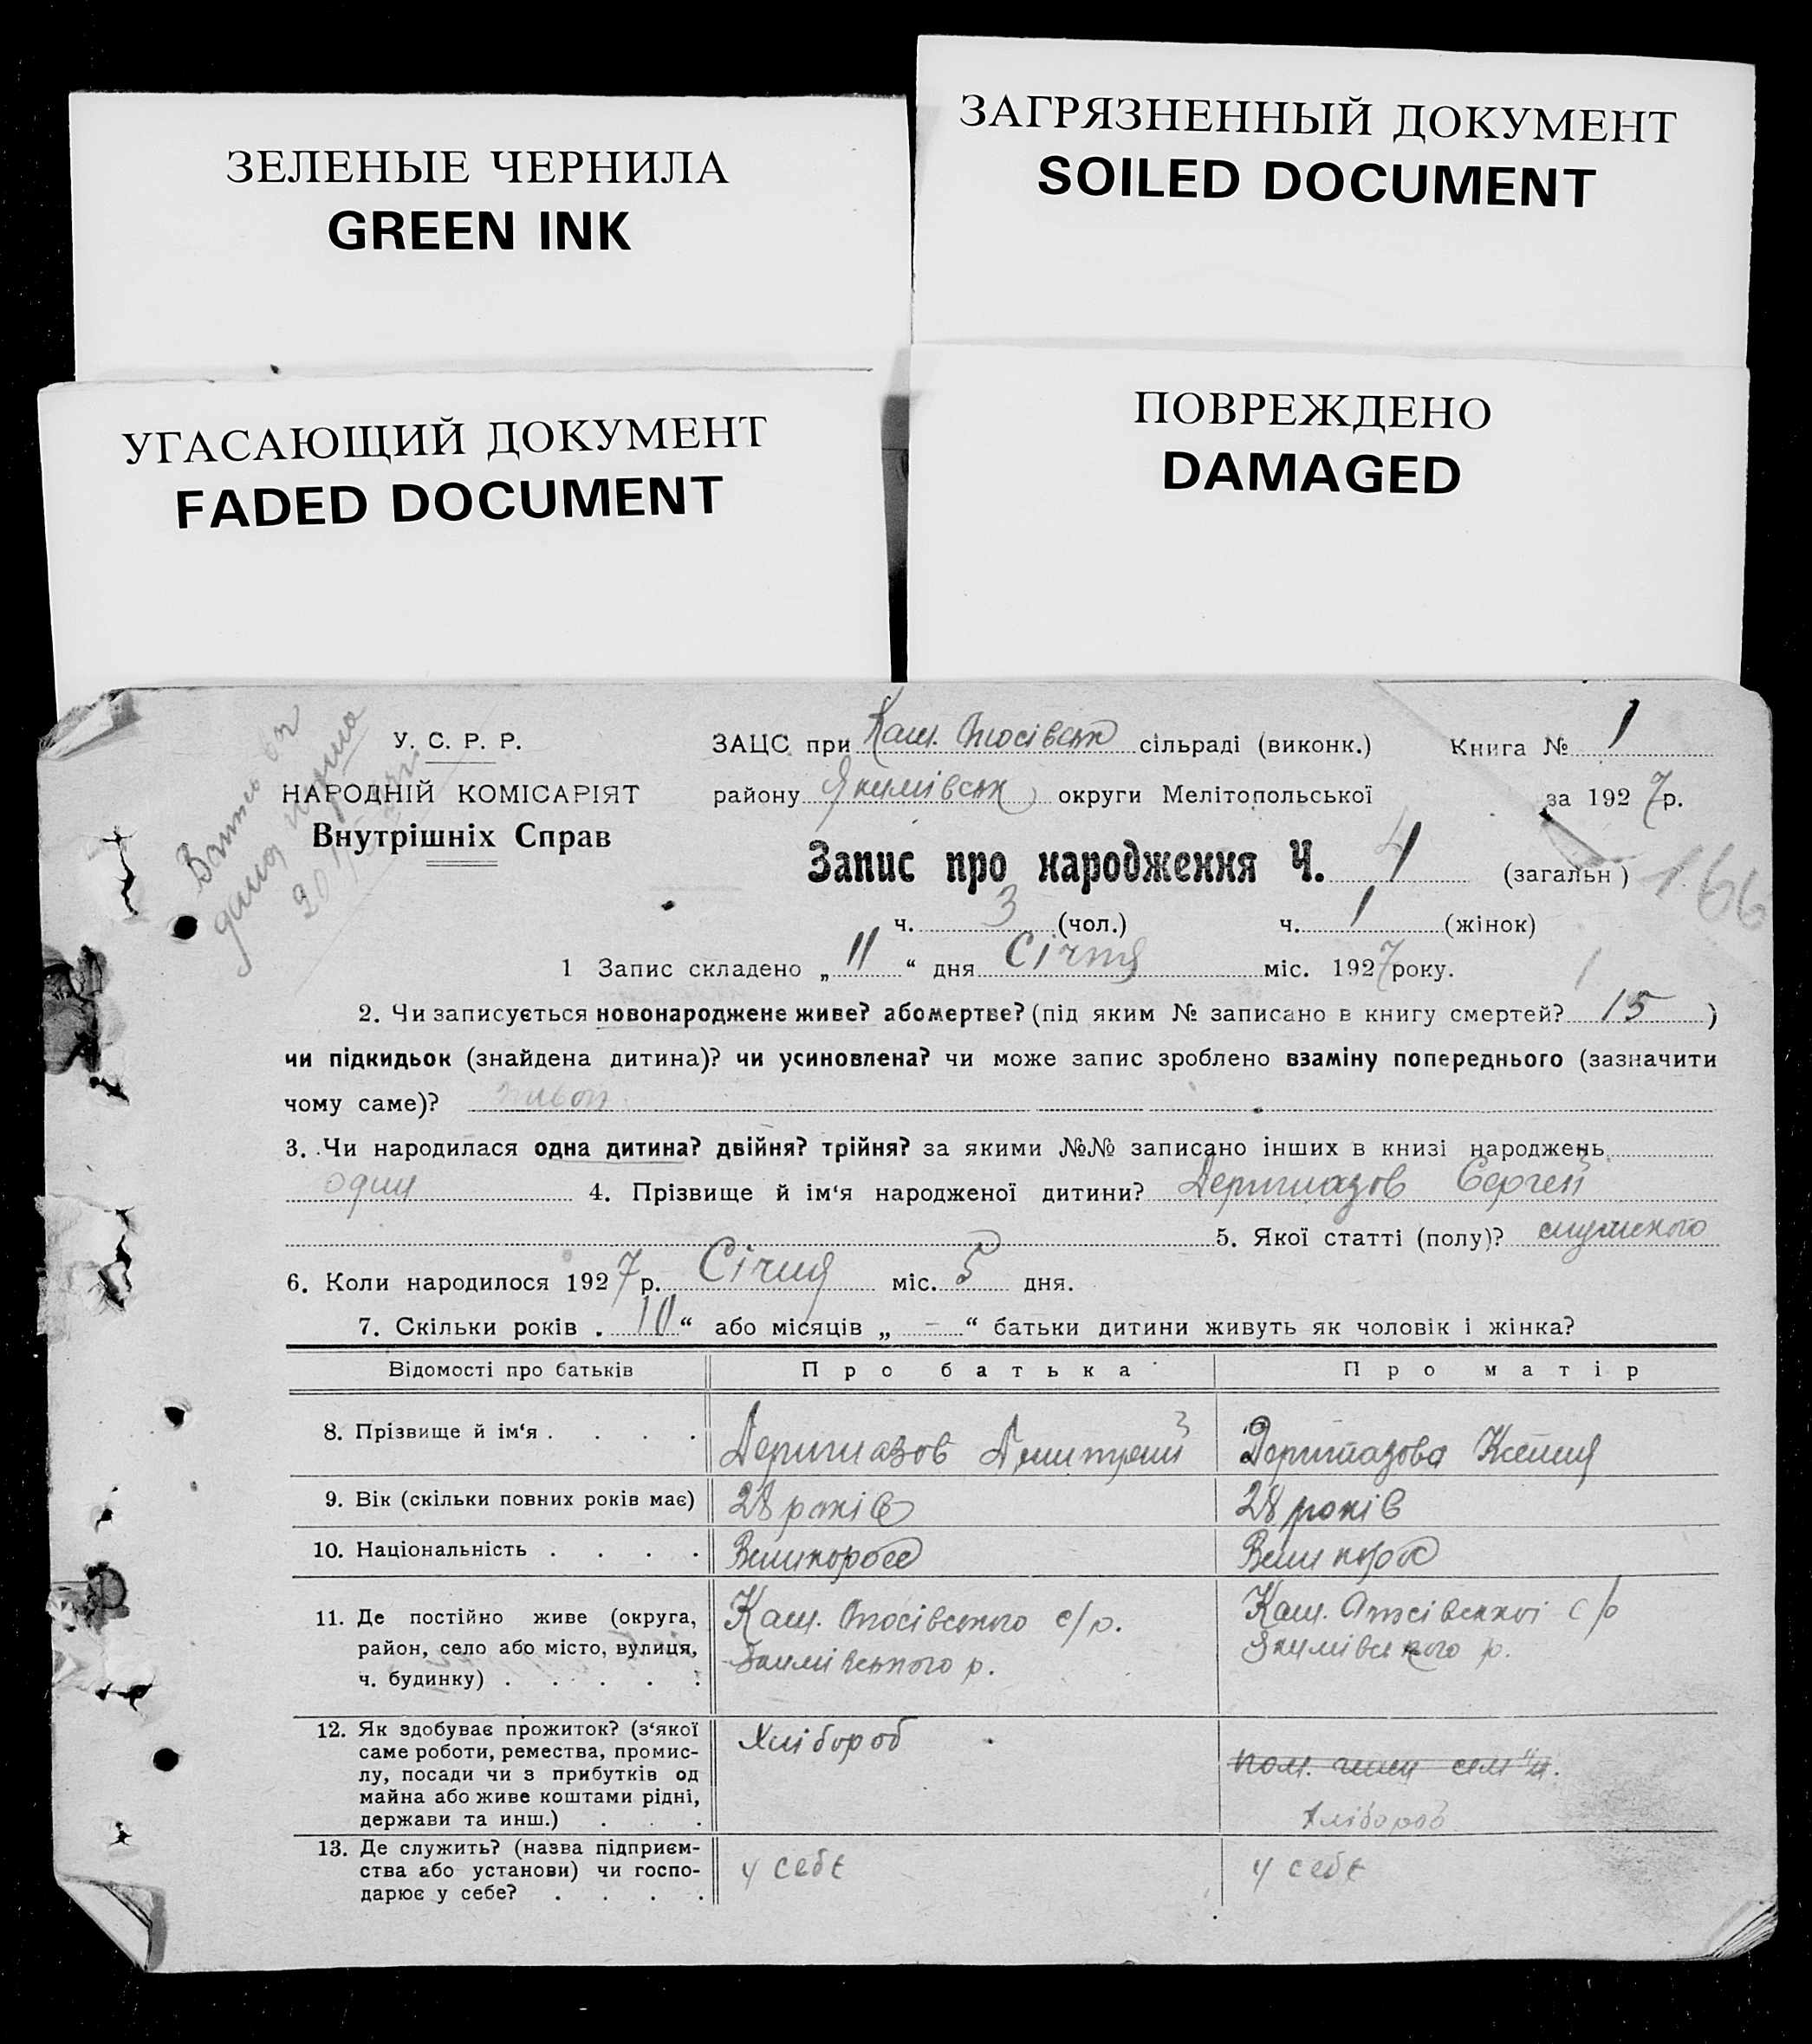 ЗЕЛЕНЫЕ ЧЕРНИЛА
GREEN INK
ЗАГРЯЗНЕННЫЙ ДОКУМЕНТ
SOILED DOCUMENT
УГАСАЮЩИЙ ДОКУМЕНТ
FADED DOCUMENT
ПОВРЕЖДЕНО
DAMAGED
У. С. Р. Р.
НАРОДНІЙ КОМІСАРІЯТ
Внутрішніх Справ
ЗАЦС при сільраді (виконк.) Книга № 1
району Якимівськ округи Мелітопольської за 1927 р.
Запис про народження Ч. 4 (загальн)
166
ч. 3 (чол.) ч. 1 (жінок)
1 Запис складено „11“ дня Січня міс. 1927 року.
1
2. Чи записується новонароджене живе? або мертве? (під яким № записано в книгу смертей? 15 )
чи підкидьок (знайдена дитина)? чи усиновлена? чи може запис зроблено взаміну попереднього (зазначити
чому саме)?
3. Чи народилася одна дитина? двійня? трійня? за якими №№ записано інших в книзі народжень
один 4. Прізвище й ім‘я народженої дитини? Дерипазов Сергей
5. Якої статті (полу)? мужского
6. Коли народилося 1927 р. Січня міс. 5 дня.
7. Скільки років „10“ або місяців „ - “ батьки дитини живуть як чоловік і жінка?
Відомості про батьків Про батька Про матір
8. Прізвище й ім‘я . . . . Дерипазов Дмитрий Дерипазова Ксения
9. Вік (скільки повних років має) 28 років 28 років
10. Національність . . . . Великоросс Великорос
11. Де постійно живе (округа,
район, село або місто, вулиця,
ч. будинку) . . . . .
Якимівського р.
Якимівського р.
12. Як здобуває прожиток? (з‘якої
саме роботи, ремества, промис-
лу, посади чи з прибутків од
майна або живе коштами рідні,
держави та инш.) . . .
Хлібороб
Хлібороб
13. Де служить? (назва підприєм-
ства або установи) чи госпо-
дарює у себе? . . . .
у себе
у себе